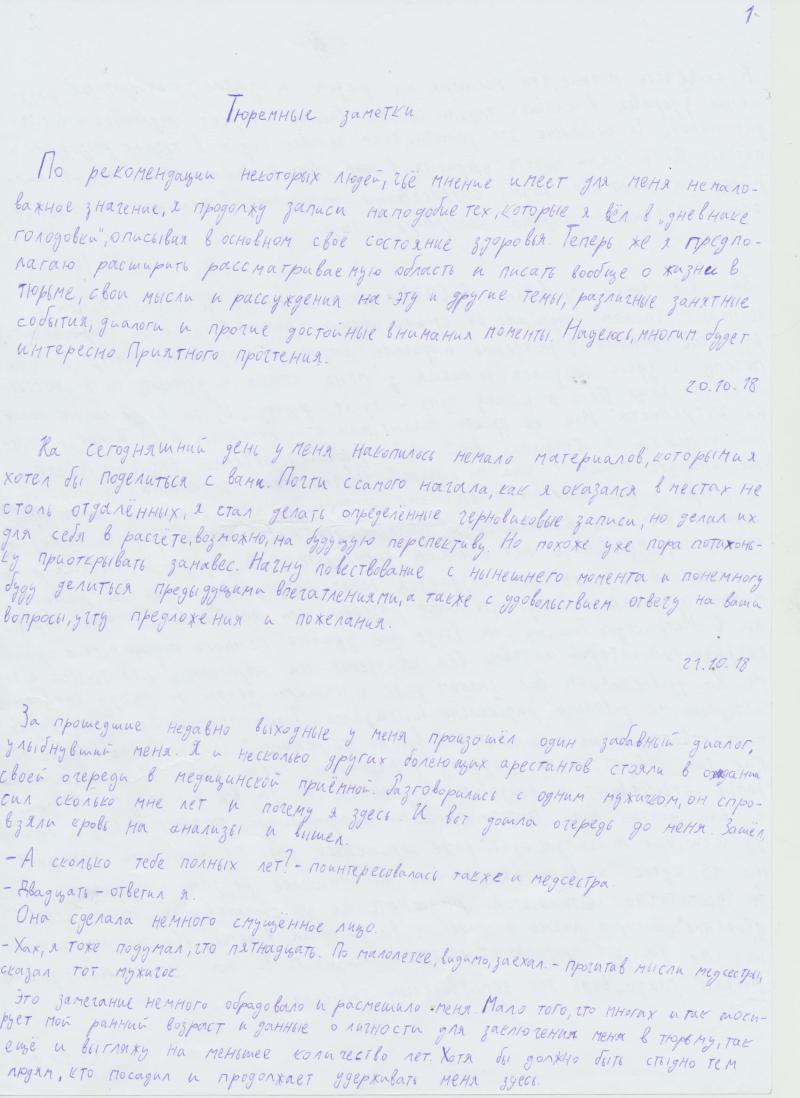 1-
Тюремные заметки
По рекомендации некоторых людей, чьё мнение имеет для меня немало-
важное значение, я продолжу записи наподобие тех, которые я вёл в „дневнике
голодовки", описывая в основном своё состояние здоровья. Теперь же я предпо-
лагаю расширить рассматриваемую область и писать вообще о жизни в
тюрьме, свои мысли и рассуждения на эту и другие темы, различные занятные
события, диалоги и прочие достойные внимания моменты. Надеюсь, многим будет
интересно. Приятного прочтения.
20.10.18
На сегодняшний день у меня накопилось немало материалов, которыми я
хотел бы поделиться с вами. Почти с самого начала, как я оказался в местах не
столь отдалённых, я стал делать определённые черновиковые записи, но делал их
для себя в расчёте, возможно, на будущую перспективу. Но похоже уже пора потихонь-
ку приоткрывать занавес. Начну повествование с нынешнего момента и понемногу
буду делиться предыдущими впечатлениями, а также с удовольствием отвечу на ваши
вопросы, учту предложения и пожелания.
21.10.18
За прошедшие недавно выходные у меня произошёл один забавный диалог,
улыбнувший меня. Я и несколько других болеющих арестантов стояли в ожидании
своей очереди в медицинской приёмной. Разговорились с одним мужичком, он спро-
сил сколько мне лет и почему я здесь. И вот дошла очередь до меня. Зашёл,
взяли кровь на анализы и вышел.
- А сколько тебе полных лет? - поинтересовалась также и медсестра.
- Двадцать - ответил я.
Она сделала немного смущённое лицо.
- Хах, я тоже подумал, что пятнадцать. По малолетке, видимо, заехал. - прочитав мысли медсестры,
сказал тот мужичок.
Это замечание немного обрадовало и рассмешило меня. Мало того, что многих и так шоки-
рует мой ранний возраст и данные о личности для заключения меня в тюрьму, так
ещё и выгляжу на меньшее количество лет. Хотя бы должно быть стыдно тем
людям, кто посадил и продолжает удерживать меня здесь.